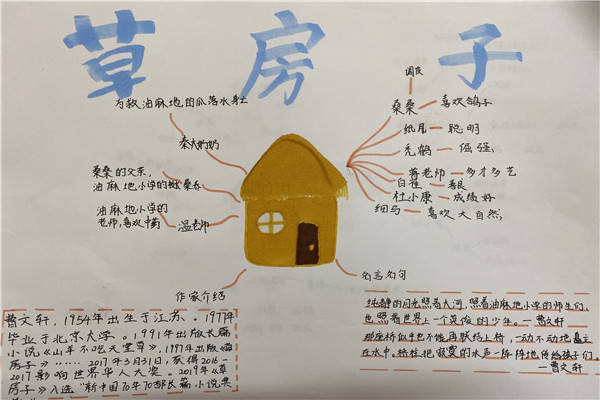 草房子
为救油麻地的瓜落水身亡
秦大奶奶
桑桑的父亲,
油麻地小学的校
桑乔
油麻地小学的
老师,喜欢中药
温幼
调皮
桑桑
喜欢鸽子
纸月
聪明
秃鹤
倔强
蒋老师
多才多艺
白雀
善良
杜小康
成绩好
细马
喜欢大自然
作家介绍
名言名句
曹文轩,1954年出生于江苏。1977年
毕业于北京大学。1991年出版长篇
小说《山羊不吃天堂草》,1997年出版《草
房子》……2017年3月31日,获得2016—
2017影响世界华人大奖。2019年《草
房子》入选"新中国70年70部长篇小说典
纯静的月光照着大河,照着油麻地小学的师生们,
也照着世界上一个英俊的少年。—曹文轩
那座桥似乎也不能再联结上桥,一动不动地矗立
在水中。桥柱把寂寞的水声一阵阵地传给孩子们。
—曹文轩